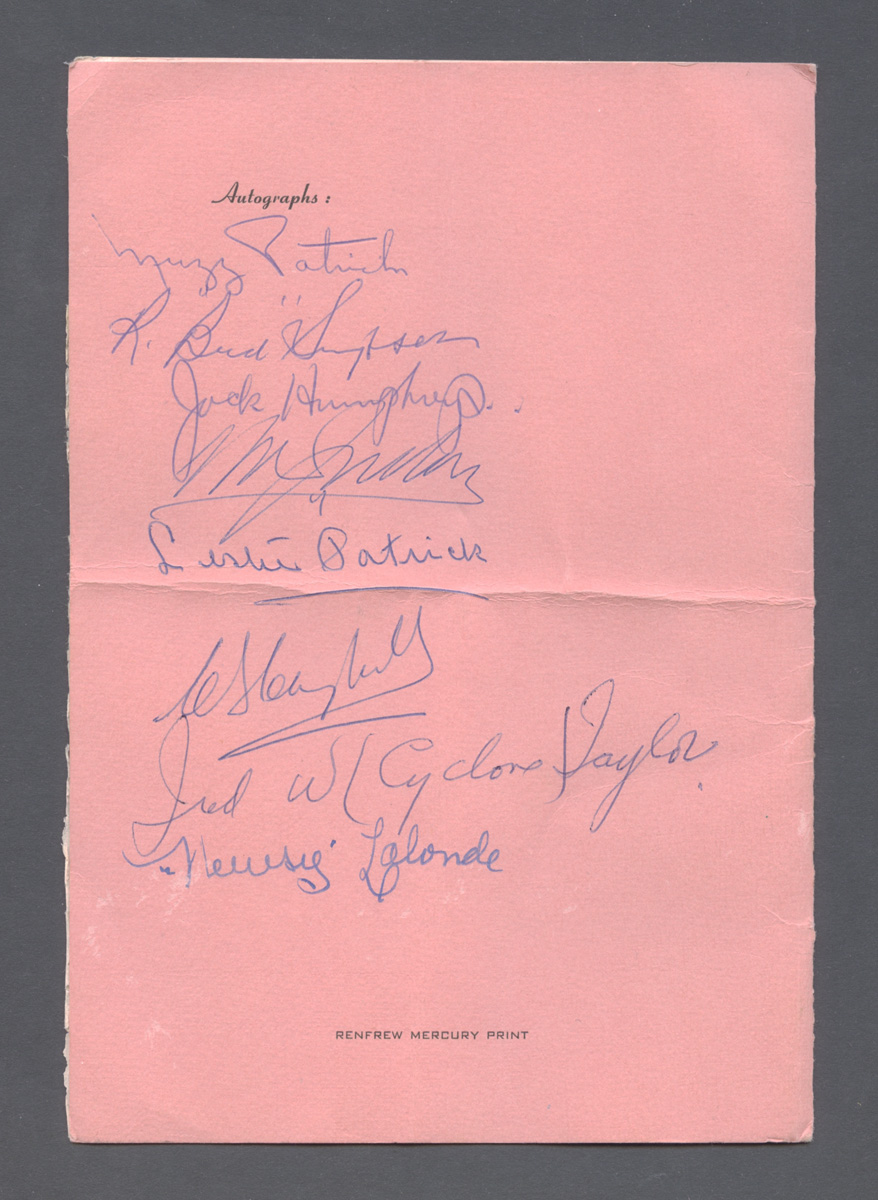 Autographs :
Muzz Patrick
R. "Bud" Simpson
Jack Humphreys.
Lester Patrick
Fred W (Cyclone) Taylor
"Newsie" Lalonde
RENFREW MERCURY PRINT